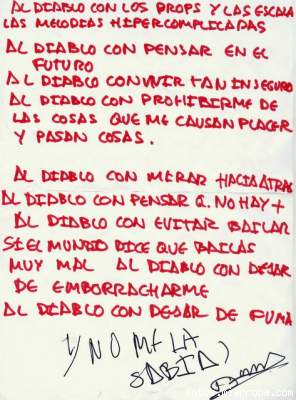 AL DIABLO CON LOS PROPS Y LAS ESCALA
LAS MELODIAS HIPERCOMPLICADAS
AL DIABLO CON PENSAR EN EL
FUTURO
AL DIABLO CONVIVIR TAN INSEGURO
AL DIABLO CON PROHIBIRME DE
LAS COSAS QUE ME CAUSAN PLACER
Y PASAN COSAS.
AL DIABLO CON MIRAR HACIA ATRAS
AL DIABLO CON PENSAR Q. NO HAY +
AL DIABLO CON EVITAR BAILAR
SI EL MUNDO DICE QUE BAILAS
MUY MAL AL DIABLO CON DEJAR
DE EMBORRACHARME
AL DIABLO CON DEJAR DE FUMA
Y NO ME LA
SABIA)